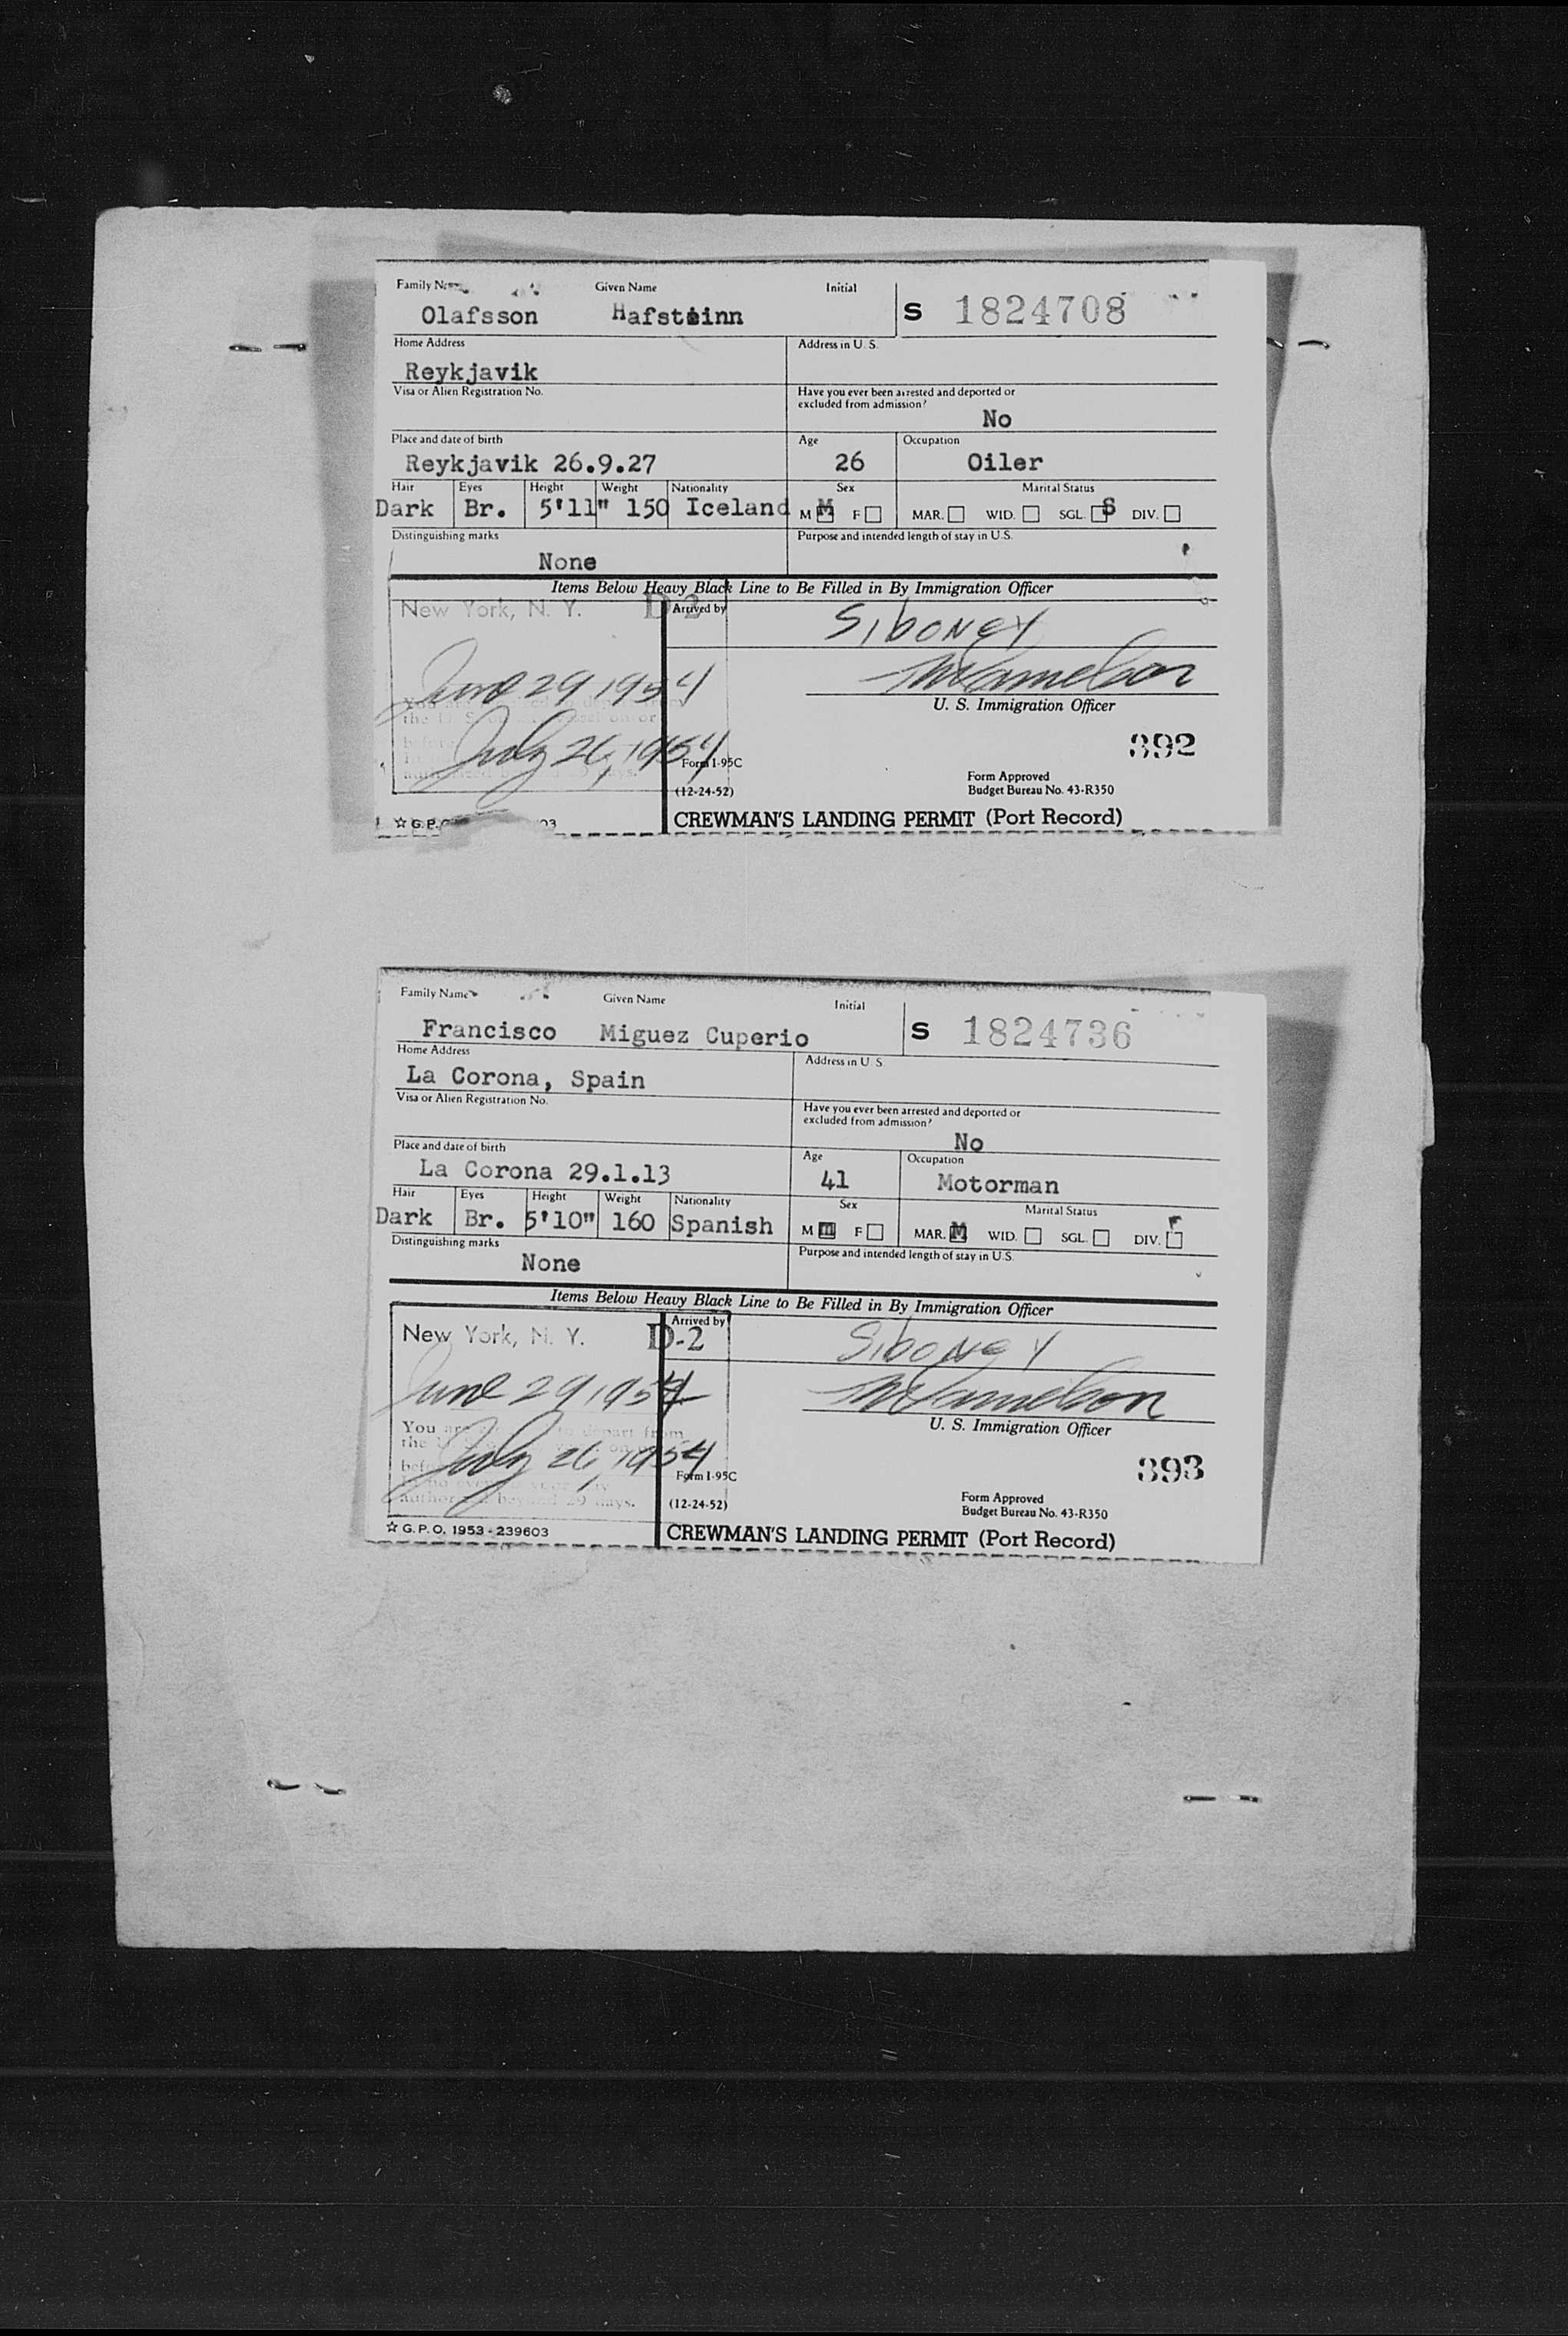 Family Name Given Name Initial
Olafsson Hafsteinn S 1824708
Home Address Address in U. S.
Reykjavik
Visa or Alien Registration No. Have you ever been arrested and deported or
excluded from admission?
No
Place and date of birth Age Occupation
Reykjavik 26.9.27 26 Oiler
Hair Eyes Height Weight Nationality Sex Marital Status
Dark Br. 5'11" 150 Iceland M M F MAR. WID. SGL. S DIV.
Distinguishing marks Purpose and intended length of stay in U.S.
None
Items Below Heavy Black Line to Be Filled in By Immigration Officer
New York, N. Y. D-2 Arrived by SIBONEY
June 29, 1954
U. S. Immigration Officer
the U.S. on or
July 26, 1954
392
Form I-95C
(12-24-52)
Form Approved
Budget Bureau No. 43-R350
☆ G.P.O. 03
CREWMAN'S LANDING PERMIT (Port Record)
Family Name Given Name Initial
Francisco Miguez Cuperio S 1824736
Home Address Address in U. S.
La Corona, Spain
Visa or Alien Registration No. Have you ever been arrested and deported or
excluded from admission?
No
Place and date of birth Age Occupation
La Corona 29.1.13 41 Motorman
Hair Eyes Height Weight Nationality Sex Marital Status
Dark Br. 5'10" 160 Spanish M m F MAR. M WID. SGL. DIV.
Distinguishing marks Purpose and intended length of stay in U.S.
None
Items Below Heavy Black Line to Be Filled in By Immigration Officer
New York, N. Y. D-2 Arrived by SIBONEY
June 29, 1954
U. S. Immigration Officer
You are to depart from
the on
July 26, 1954
393
beyond 29 days.
Form I-95C
(12-24-52)
Form Approved
Budget Bureau No. 43-R350
☆ G.P.O. 1953-239603
CREWMAN'S LANDING PERMIT (Port Record)